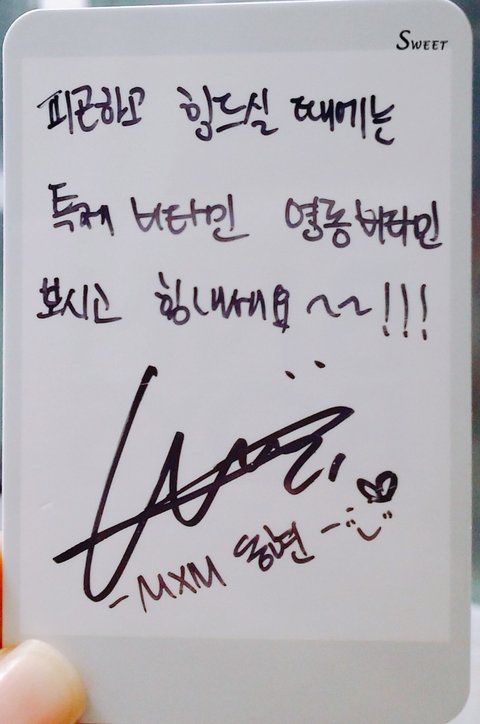 SWEET
피곤하고 힘드실 때에는
특제 비타민 열동비타민
보시고 힘내세요 ~~!!!
-MXM 동현-